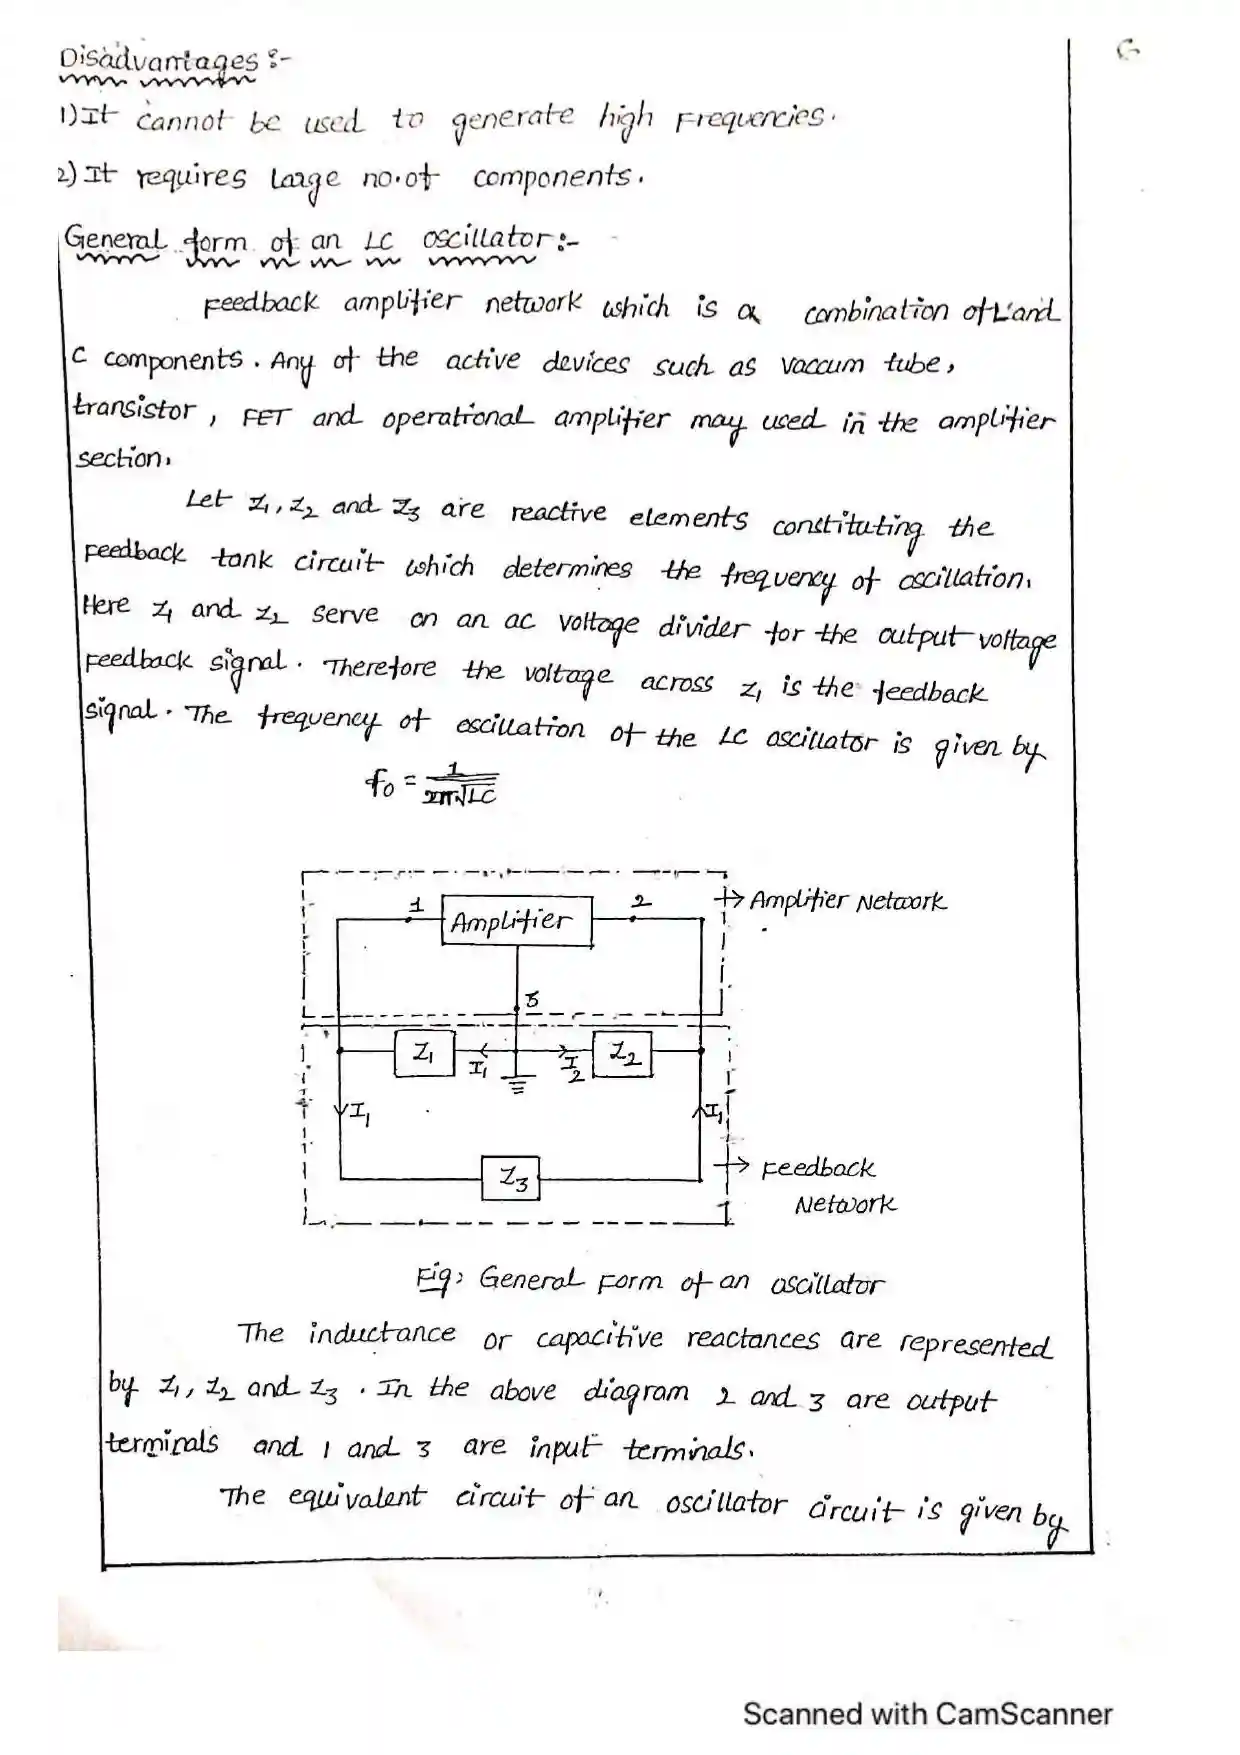 Disadvantages :-
1) It cannot be used to generate high Frequencies.
2) It requires large no.of components.
General form of an LC oscillator :-
Feedback amplifier network which is a combination of L and
C components. Any of the active devices such as vaccum tube,
transistor, FET and operational amplifier may used in the amplifier
section.
Let Z1, Z2 and Z3 are reactive elements constituting the
Feedback tank circuit which determines the frequency of oscillation.
Here Z1 and Z2 serve on an ac voltage divider for the output voltage
Feedback signal. Therefore the voltage across Z1 is the feedback
signal. The frequency of oscillation of the LC oscillator is given by
f0 = 1/2π√LC
1 Amplifier 2 → Amplifier Network
3
Z1 I1 I2 Z2
I1 I1
Z3 → Feedback
Network
Fig: General Form of an oscillator
The inductance or capacitive reactances are represented
by Z1, Z2 and Z3. In the above diagram 2 and 3 are output
terminals and 1 and 3 are input terminals.
The equivalent circuit of an oscillator circuit is given by
Scanned with CamScanner